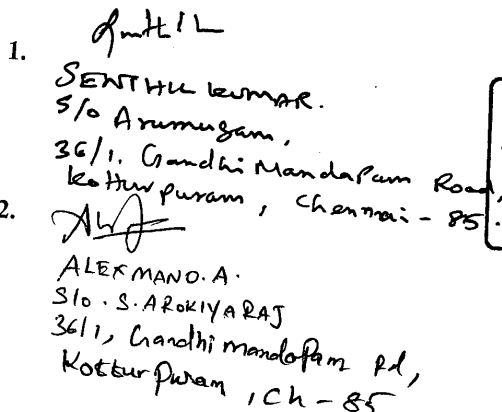 1.
SENTHIL KUMAR.
S/o Arumugam,
36/1, Gandhi Mandapam Road,
Kotturpuram, Chennai - 85.
2.
ALEX MANO. A.
S/o. S. AROKIYARAJ
36/1, Gandhi mandapam Rd,
Kottur Puram, Ch - 85